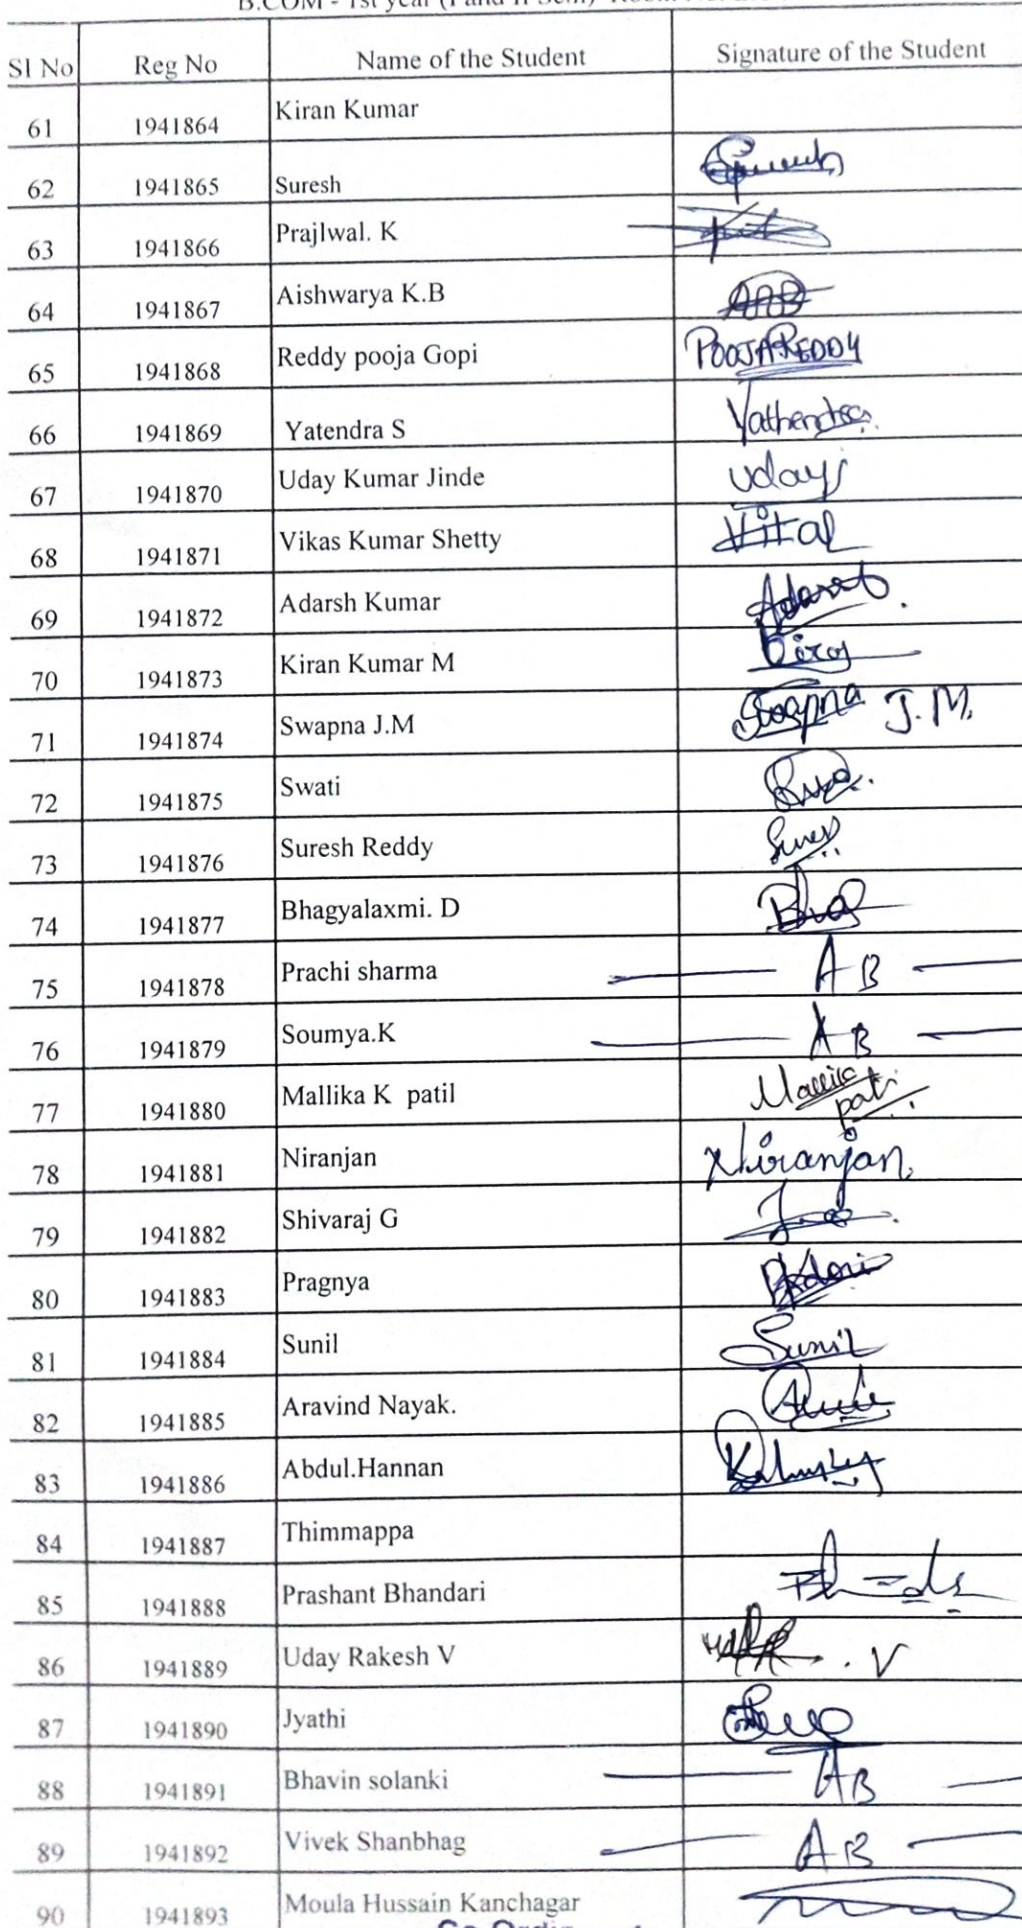 B.COM - 1st year (I and II Sem)
Sl No Reg No Name of the Student Signature of the Student
61 1941864 Kiran Kumar
62 1941865 Suresh
63 1941866 Prajlwal. K
64 1941867 Aishwarya K.B
65 1941868 Reddy pooja Gopi POOJA REDDY
66 1941869 Yatendra S
67 1941870 Uday Kumar Jinde Uday
68 1941871 Vikas Kumar Shetty
69 1941872 Adarsh Kumar
70 1941873 Kiran Kumar M
71 1941874 Swapna J.M Swapna J.M.
72 1941875 Swati
73 1941876 Suresh Reddy
74 1941877 Bhagyalaxmi. D
75 1941878 Prachi sharma AB
76 1941879 Soumya.K AB
77 1941880 Mallika K patil
78 1941881 Niranjan Niranjan
79 1941882 Shivaraj G
80 1941883 Pragnya
81 1941884 Sunil Sunil
82 1941885 Aravind Nayak.
83 1941886 Abdul.Hannan
84 1941887 Thimmappa
85 1941888 Prashant Bhandari
86 1941889 Uday Rakesh V V
87 1941890 Jyathi
88 1941891 Bhavin solanki AB
89 1941892 Vivek Shanbhag AB
90 1941893 Moula Hussain Kanchagar